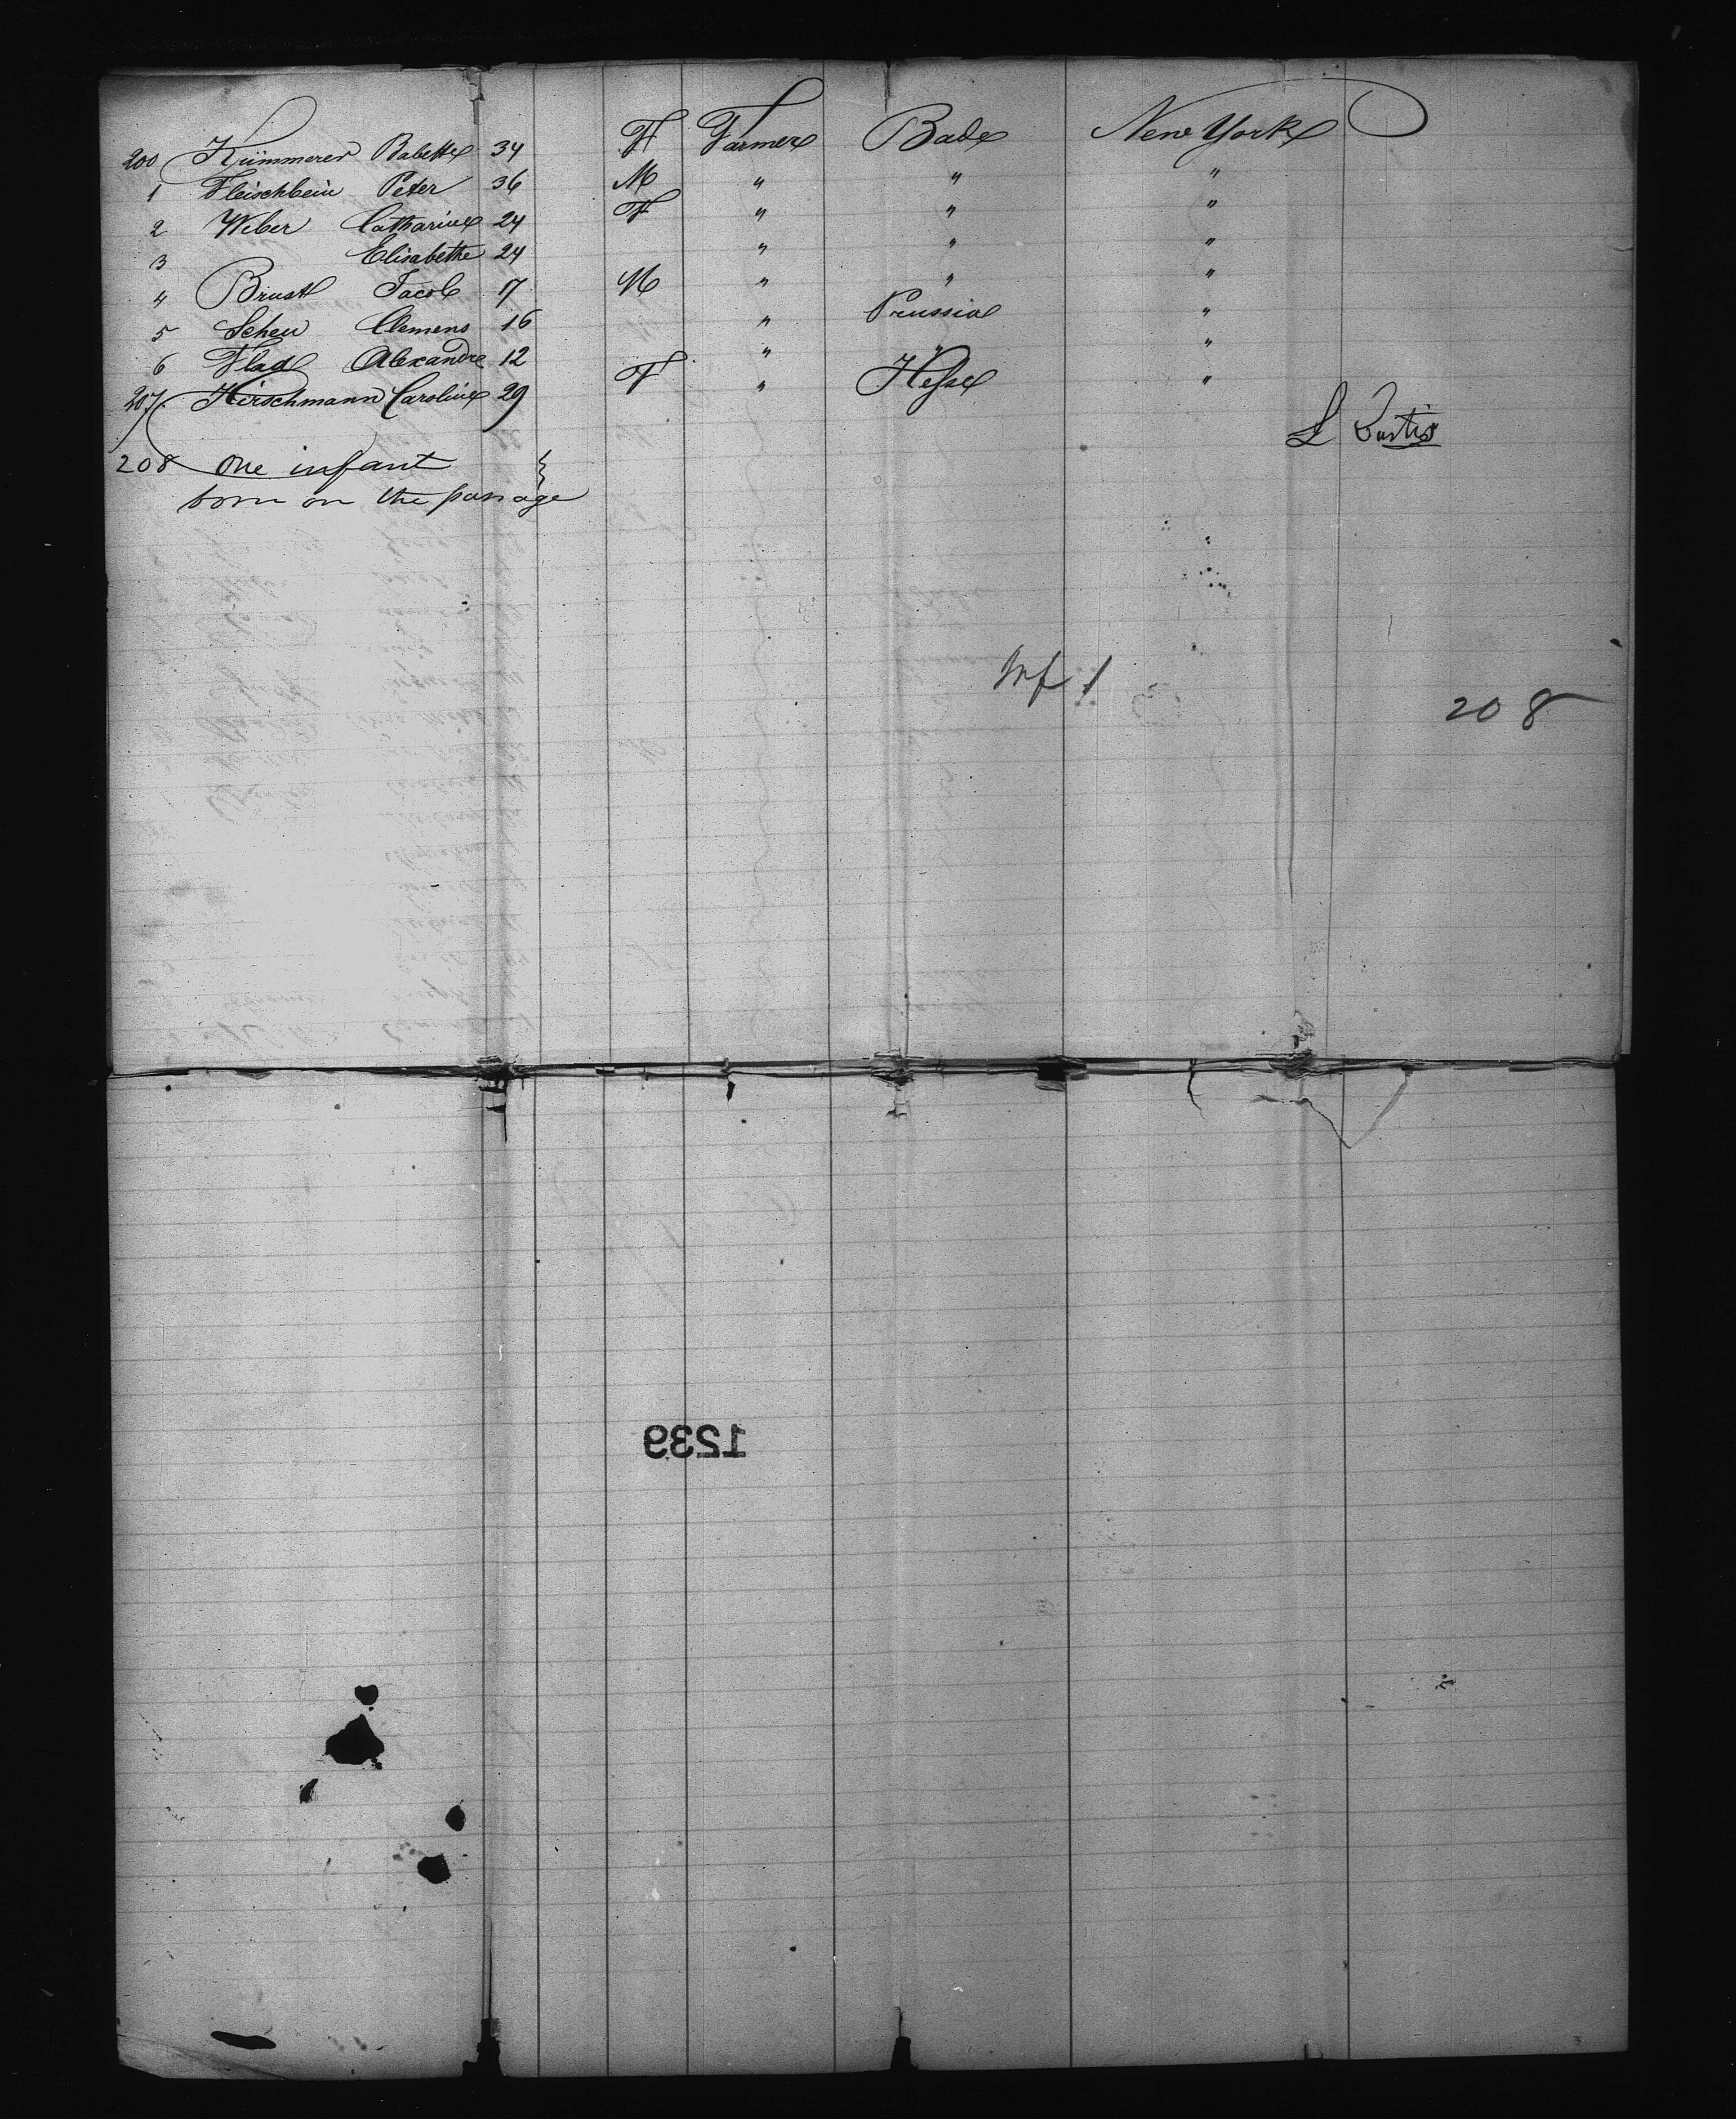 200 Kümmerer Babette 34 F Farmer Bade New York
1 Fleischbein Peter 36 M " " "
2 Weber Catharine 24 F " " "
3 Elisabethe 24 " " "
4 Brust Jacob 17 M " " "
5 Scheu Clemens 16 " Prussia "
6 Flad Alexandre 12 " " "
207 Hirschmann Caroline 29 F " Hesse "
L
208 One infant
born on the passage
Inf 1
208
1239